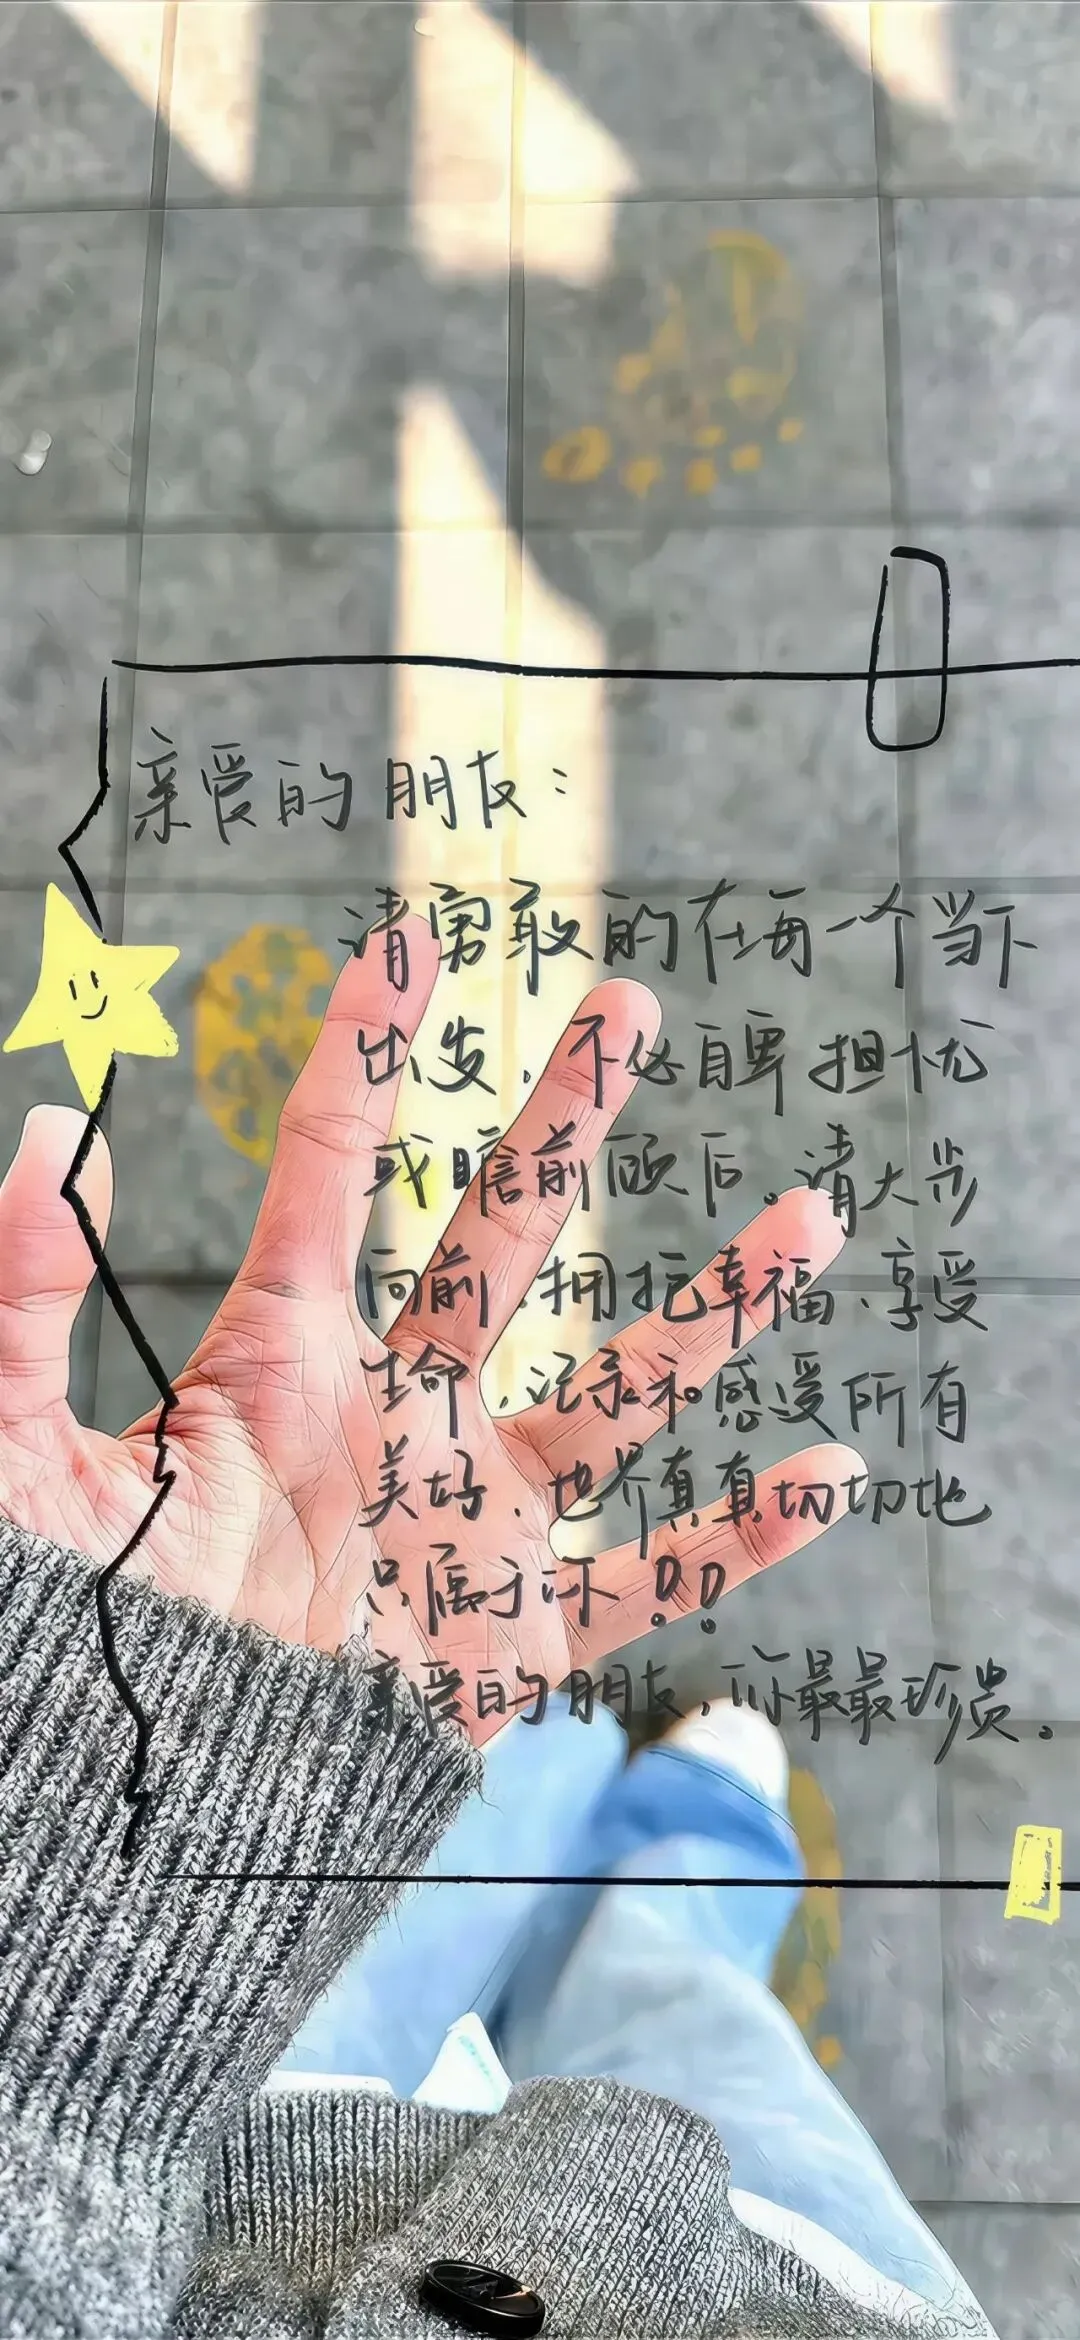 亲爱的朋友：
请勇敢的在每一个当下
出发，不必自卑担忧
或瞻前顾后。请大步
向前，拥抱幸福、享受
生命，记录和感受所有
美好，世界真真切切地
只属于你!!
亲爱的朋友，你最最珍贵。